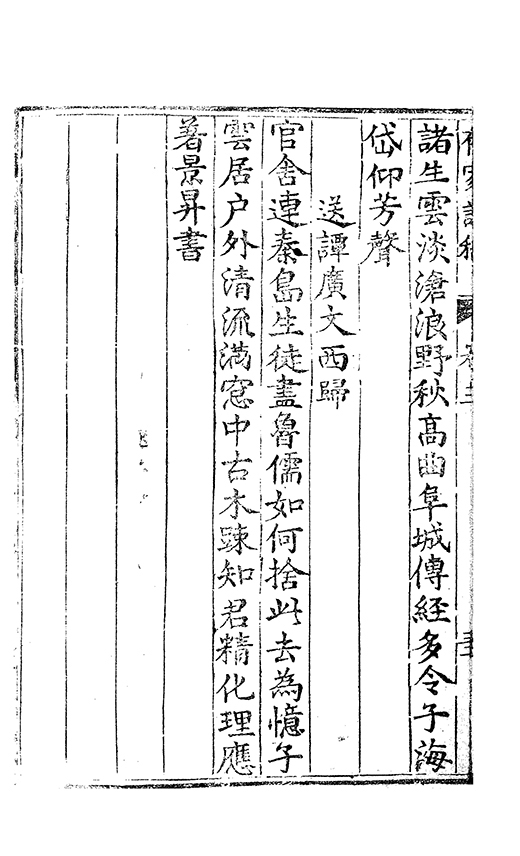 諸生雲淡滄浪野秋高曲阜城傳經多令子海
岱仰芳聲
送譚廣文西歸
官舍連秦島生徒盡魯儒如何捨此去為憶子
雲居户外清流滿窓中古木踈知君精化理應
著景昇書